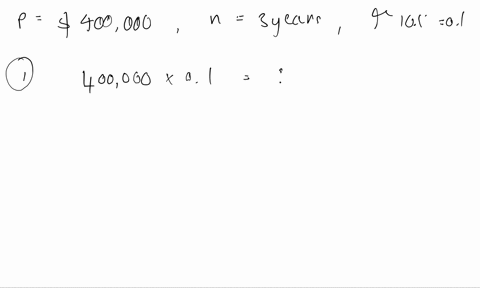 P = $ 400,000 , n = 3 years , r 10% = 0.1
1) 400,000 x 0.1 = ?